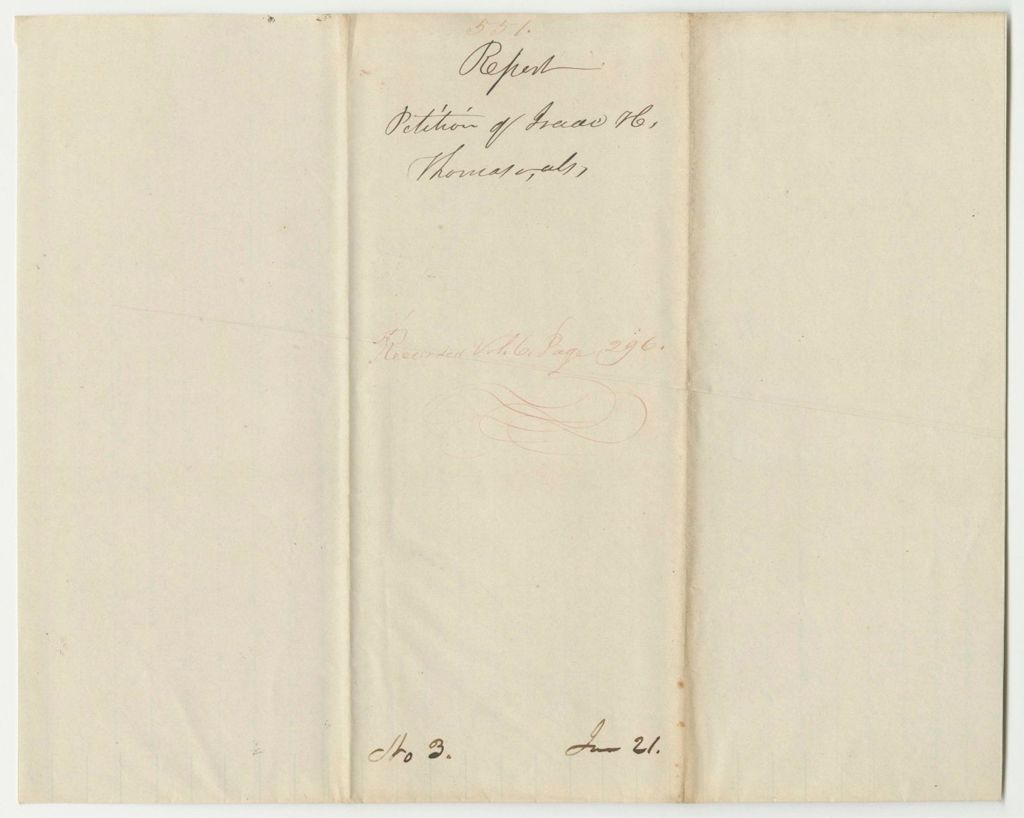 551.
Report
Petition of Isaac H,
Thomas, als,
Recorded Vol. 6. Page 296.
No 3. Jun 21.